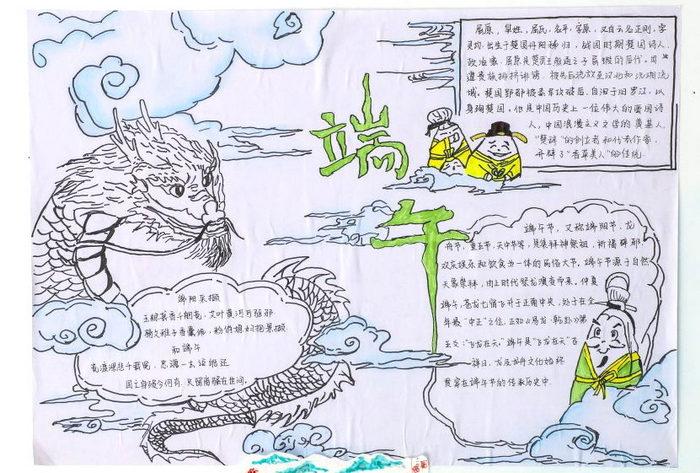 端午
屈原，芈姓，屈氏，名平，字原，又自云名正则，字
灵均，出生于楚国丹阳秭归，战国时期楚国诗人、
政治家。屈原是楚武王熊通之子屈瑕的后代。因
遭贵族排挤诽谤，被先后流放至汉北和沅湘流
域。楚国郢都被秦军攻破后，自沉于汨罗江，以
身殉楚国。他是中国历史上一位伟大的爱国诗
人，中国浪漫主义文学的奠基人，
“楚辞”的创立者和代表作家，
开辟了“香草美人”的传统
端午节，又称端阳节、龙
舟节、重五节、天中节等，是集拜神祭祖、祈福辟邪、
欢庆娱乐和饮食为一体的民俗大节。端午节源于自然
天象崇拜，由上古时代祭龙演变而来。仲夏
端午，苍龙七宿飞升于正南中央，处于全
年最“中正”之位，正如《易经·乾卦》第
五爻：“飞龙在天”。端午是“飞龙在天”吉
祥日，龙及龙舟文化始终
贯穿在端午节的传承历史中
端阳采撷
和端午